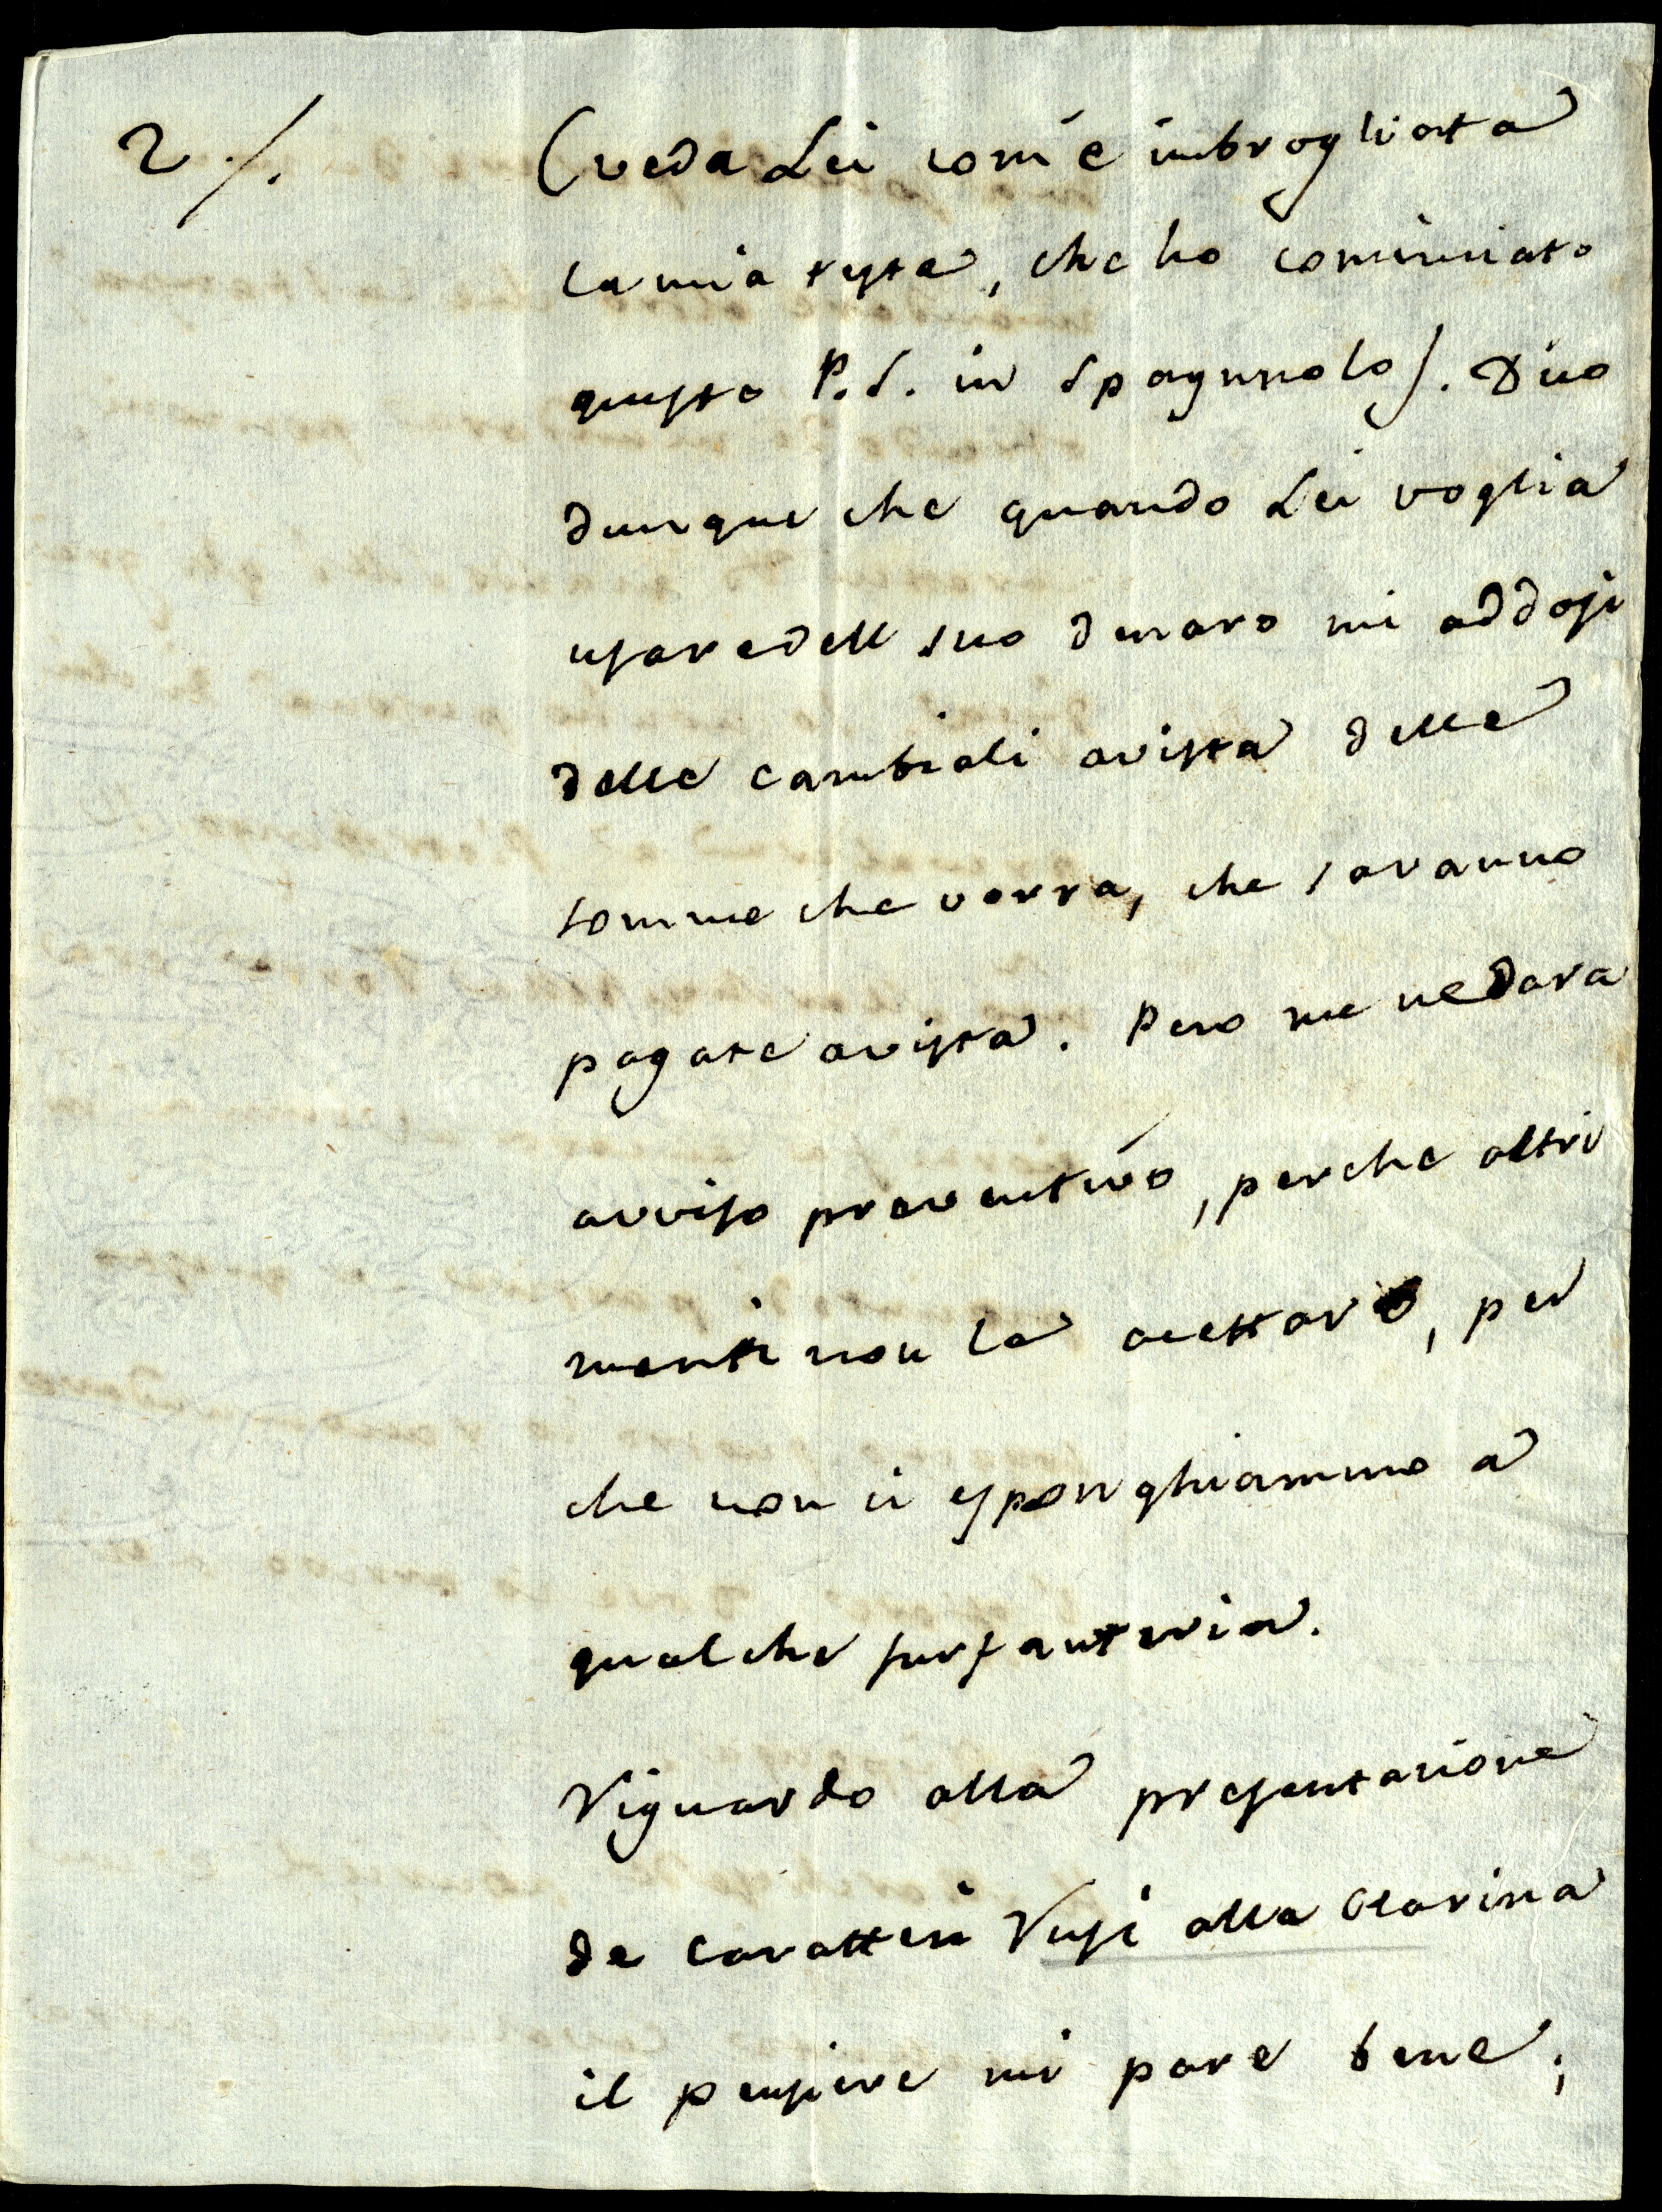 2 /. (veda Lei com'e imbrogliata
la mia testa, che ho cominciato
questo P.S. in Spagnuolo). Dico
dunque che quando Lei voglia
usare dell suo denaro mi addosi
delle cambiali avista delle
somme che vorra, che saranno
pagate avista. Pero me ne dara
avviso preventivo, perche altri
menti non la acettaró, per
che non ci esponghiammo a
qualche furfanteria.
Riguardo alla presentazione
de caratteri Rusi alla Czarina
il pensiere mi pare bene;